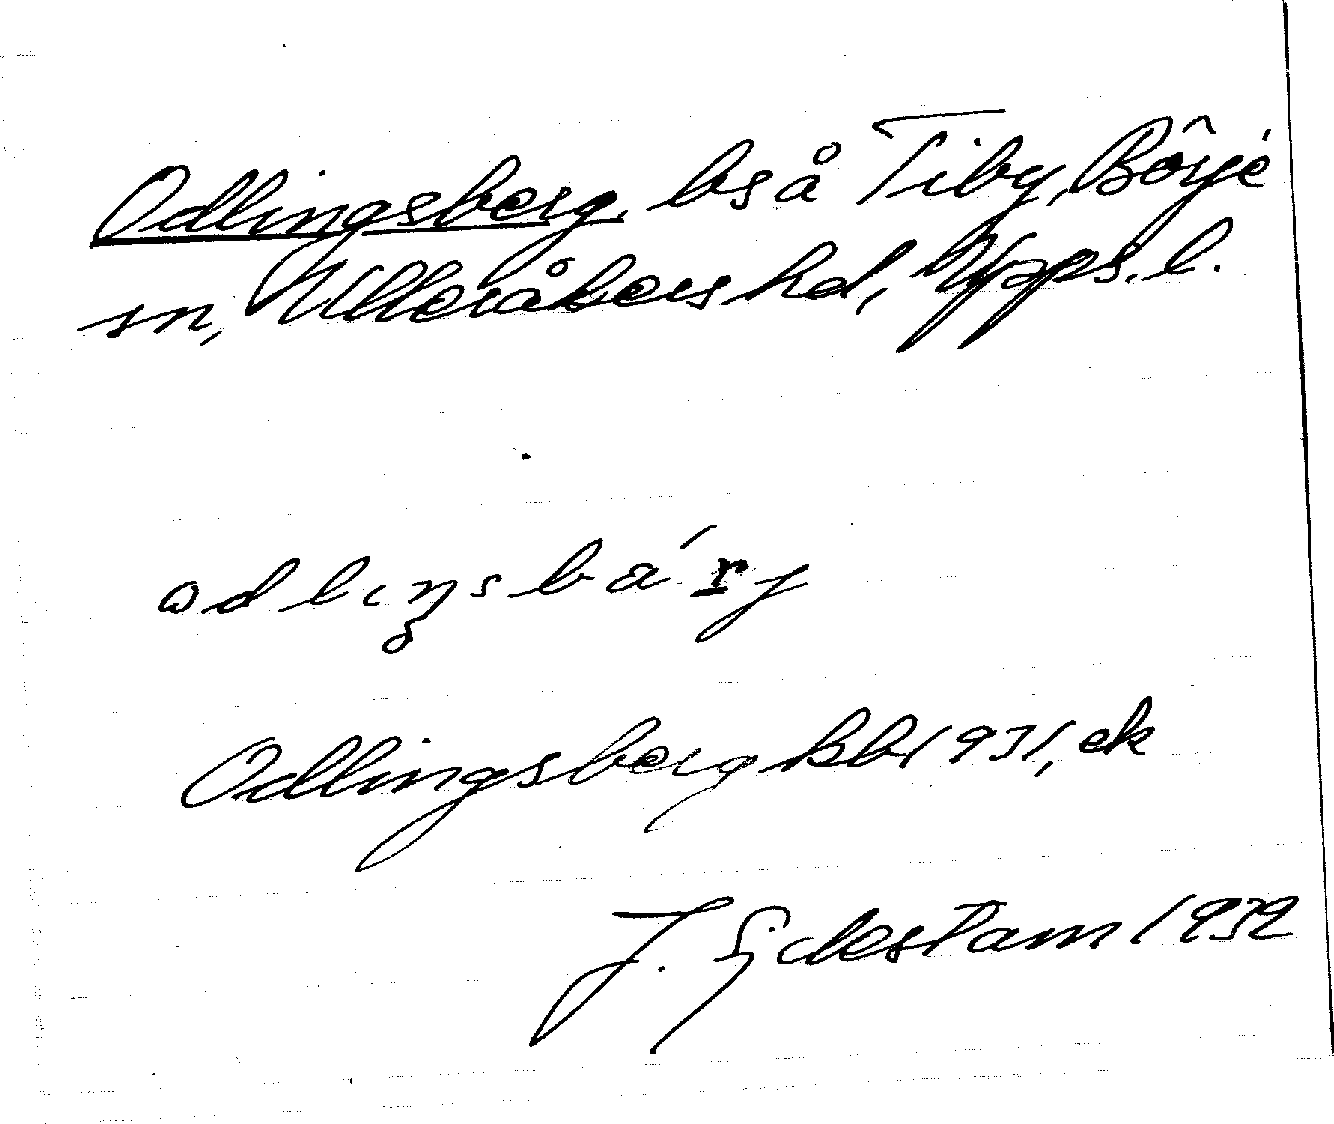 Odlingsberg, bs å Tiby, Börje
sn, Ulleråkers hd, Upps. l.
odlıŋsbár̲j
Odlingsberg kb 1931, ek
J. Sjdestam 1932